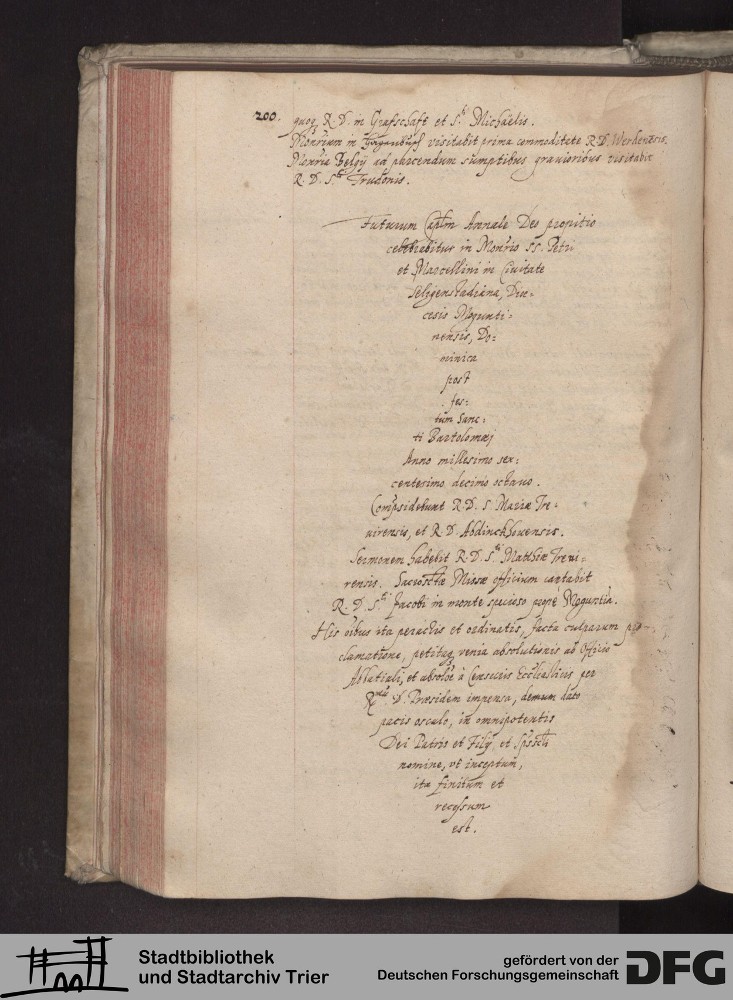 200.
quoq3 R. D. in Grafschaft et S.ti Michaëlis.
Monrium in visitabit prima commoditate R.D. Werdenēsis.
Monria Belgij ad parcendum sumptibus gravioribus visitabit
R. D. S.ti Trudonis.
Futurum Capłm Annale Deo propitio
celebrabitur in Monrio SS. Petri
et Marcellini in Civitate
Seligenstadiana, Diœ=
cesis Mogunti=
nensis, Do=
minica
post
fes=
tum Sanc=
ti Bartolomæj
Anno millesimo sex=
centesimo decimo octavo.
Compsidebunt R.D. S. Mariæ Tre=
uirensis, et R.D. Abdinckhouensis.
Sermonem habebit R.D. S.ti Matthiæ Treui=
rensis. Sacrosctæ Missæ officium cantabit
R. D. S.ti Jacobi in monte specioso propè Moguntiā.
His oibus ita peractis et ordinatis, facta culparum pro=
clamatione, petitaq3 venia absolutionis ab Officio
Abbatiali, et absolōe à Censuris Ecclīasticis per
Rmū D. Præsidem impensa, demum dato
pacis osculo, in omnipotentis
Dei Patris et Filij et Spssctī
nomine, vt inceptum,
ita finitum et
recessum
est.
Stadtbibliothek
und Stadtarchiv Trier
gefördert von der
Deutschen Forschungsgemeinschaft
DFG